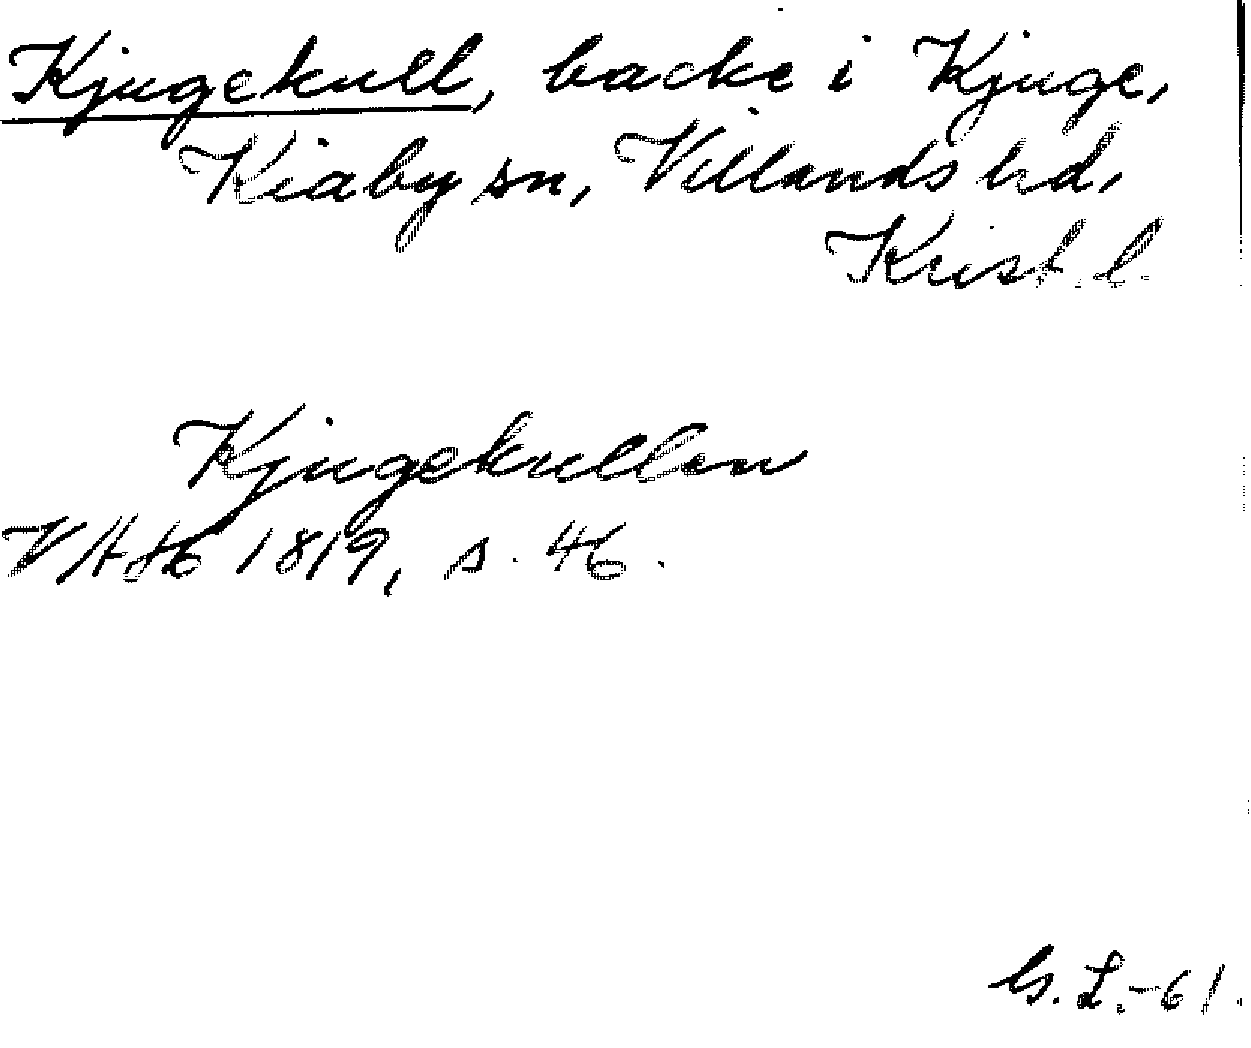 Kjugekull, backe i Kjuge,
Kiaby sn, Villands hd,
Krist. l.
Kjugekullen
VAH 1819, s. 46.
G. L. -61.